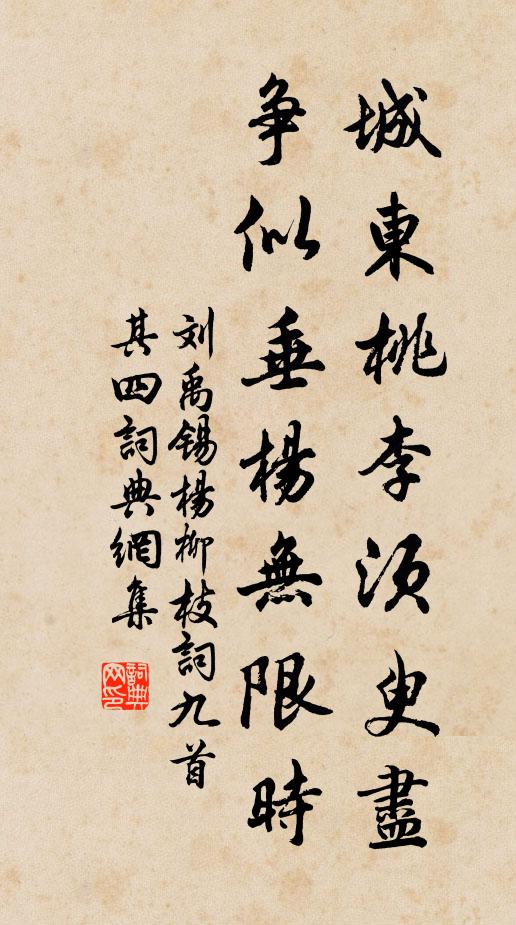 城東桃李須臾盡
爭似垂楊無限時
刘禹锡楊柳枝詞九首
其四詞典網集
詞典網印